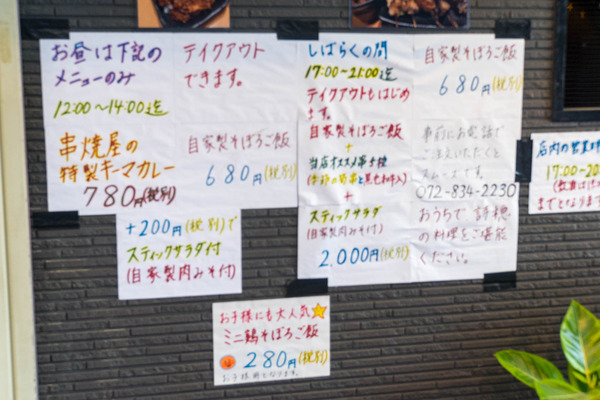 お昼は下記の
メニューのみ
12:00〜14:00迄
串焼屋の
特製キーマカレー
780円(税別)
テイクアウト
できます。
自家製そぼろご飯
680円(税別)
+200円(税別)で
スティックサラダ付
(自家製肉みそ付)
しばらくの間
17:00〜21:00迄
テイクアウトもはじめ
ます。
自家製そぼろご飯
+
当店オススメ串5種
+
スティックサラダ
(自家製肉みそ付)
2,000円(税別)
自家製そぼろご飯
680円(税別)
事前にお電話で
ご注文いただくと
スムーズです。
072-834-2230
おうちで
の料理をご堪能
ください。
店内の営業時
17:00〜20:
までとなります
お子様にも大人気
ミニ鶏そぼろご飯
280円(税別)
お子様用となります。